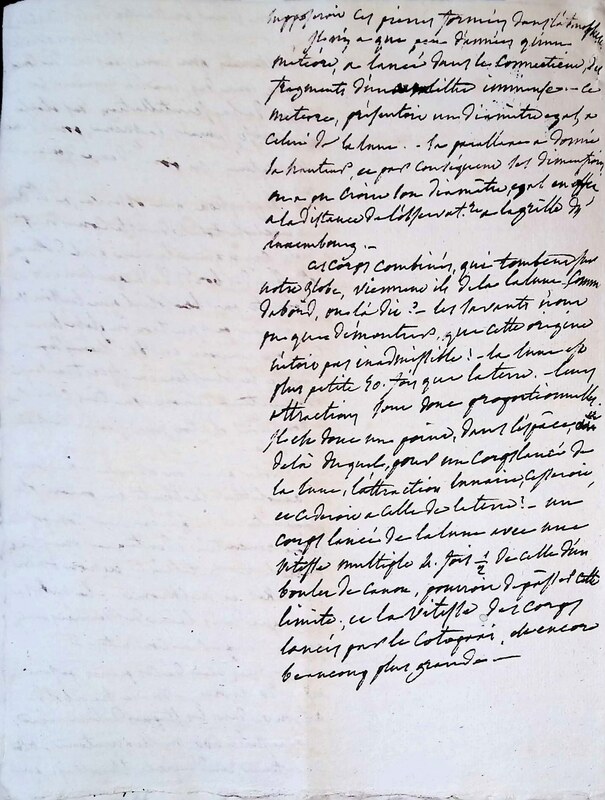 supposeroit ces pierres formées dans l'atmosphere
Il n'y a que peu d'années qu'un
météore, a lancé dans le Connecticut, des
fragments d'un immense — Ce
meteore, présentoit un diametre egal a
celui de la lune. - la parallaxe a donné
sa hauteur, et par conséquent ses dimensions
on a pu croire son diametre, egal en effet
a la distance de l'observat.re a la grille du
luxembourg —
Ces corps combinés, qui tombent sur
notre globe, viennent ils de la lune, comme
dabord, on l'a dit ? — les savants n'ont
pu que démontrer, que cette origine
n'étoit pas inadmissible ! - la lune est
plus petite 50. fois que la terre. - leurs
attractions sont donc proportionnelles.
Il est donc un point, dans l'espace,
dela duquel, pour un corps lancé de
la lune, l'attraction lunaire cesseroit,
et cederoit a celle de la terre ! - un
corps lancé de la lune avec une
vitesse multiple 5. fois 1/2 de celle d'un
boulet de canon, pourroit depasser cette
limite, et la vitesse des corps
lancés par le Cotopaxi, est encore
beaucoup plus grande —